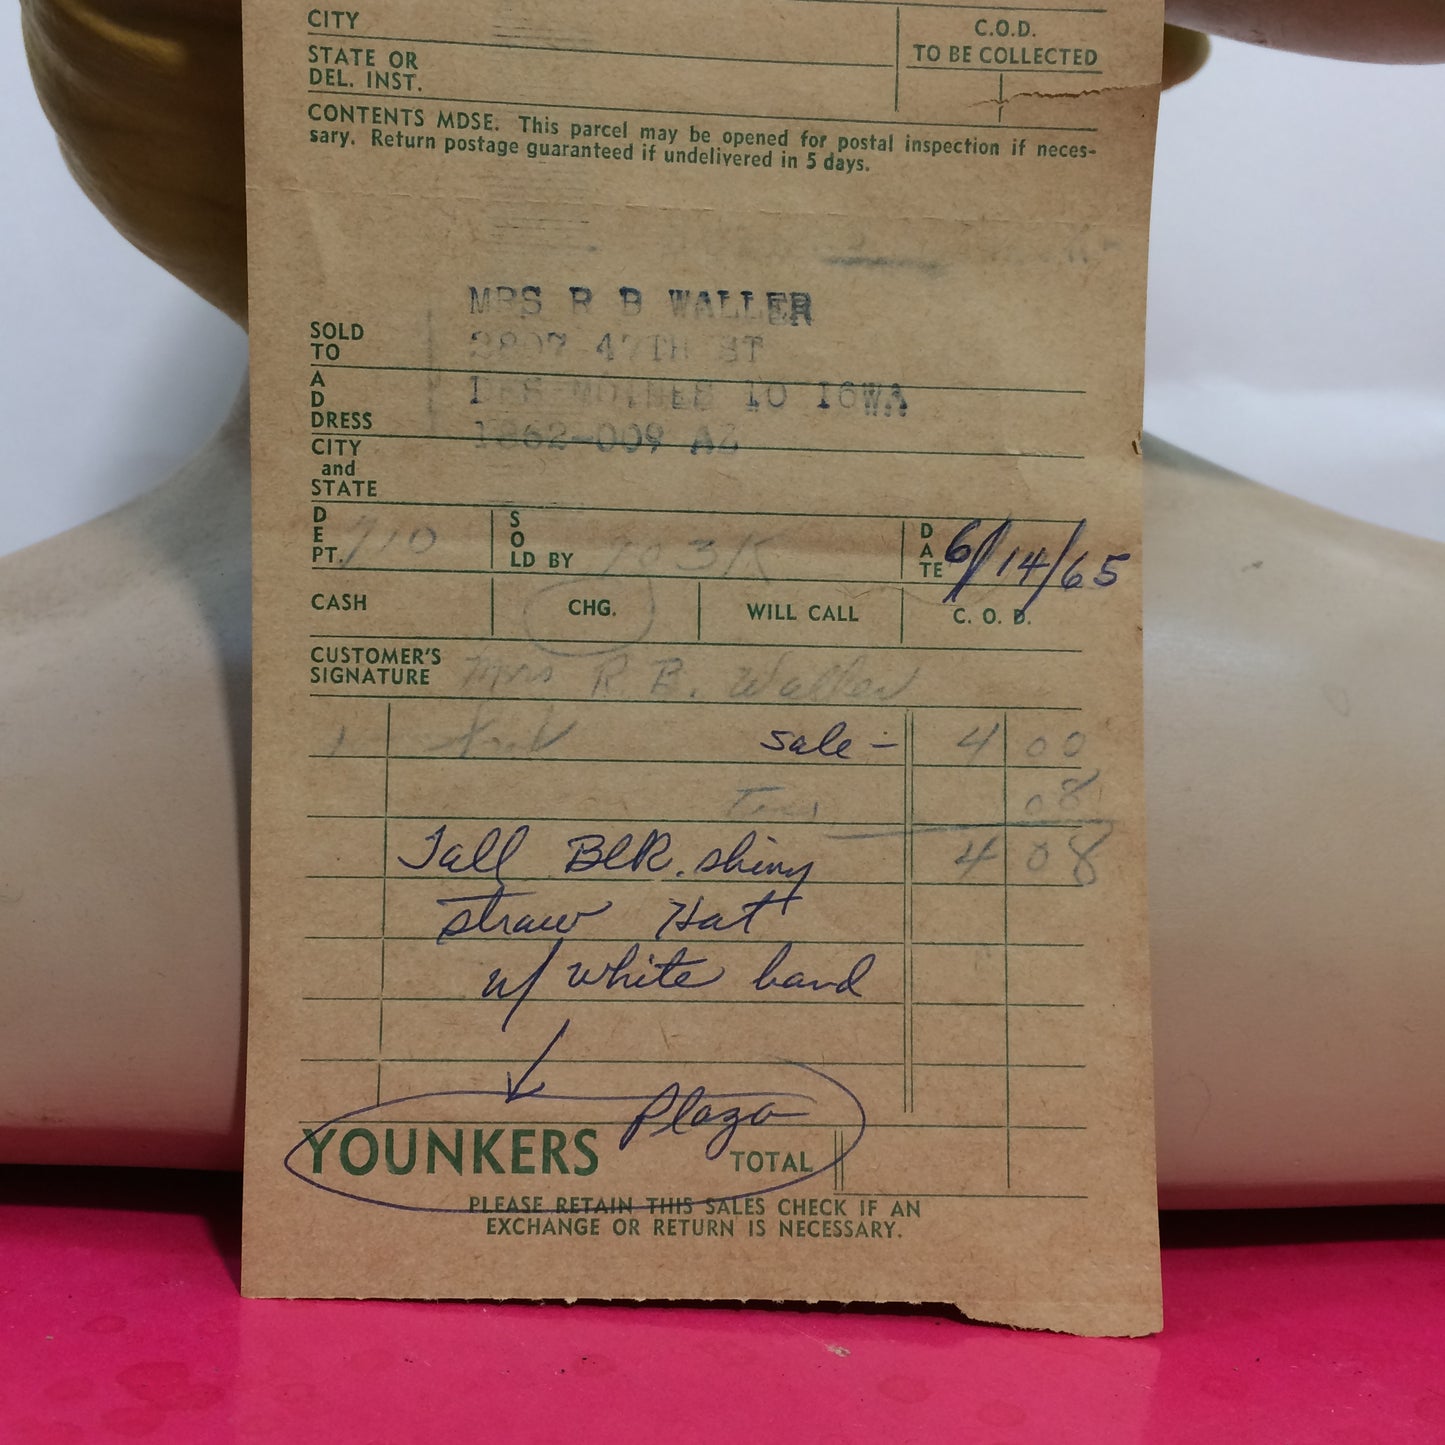 CITY
C.O.D.
TO BE COLLECTED
STATE OR
DEL. INST.
CONTENTS MDSE. This parcel may be opened for postal inspection if neces-
sary. Return postage guaranteed if undelivered in 5 days.
MRS R B WALLER
SOLD
TO
2807 47TH ST
ADDRESS
DES MOINES 10 IOWA
CITY
and
STATE
1862-009 A2
DEPT. 710
SOLD BY 703K
DATE 6/14/65
CASH
CHG.
WILL CALL
C. O. D.
CUSTOMER'S
SIGNATURE
Mrs R. B. Waller
1 sale - 4 00
Tax 08
4 08
Tall BLK. shiny
straw Hat
w/ white band
YOUNKERS Plaza
TOTAL
PLEASE RETAIN THIS SALES CHECK IF AN
EXCHANGE OR RETURN IS NECESSARY.